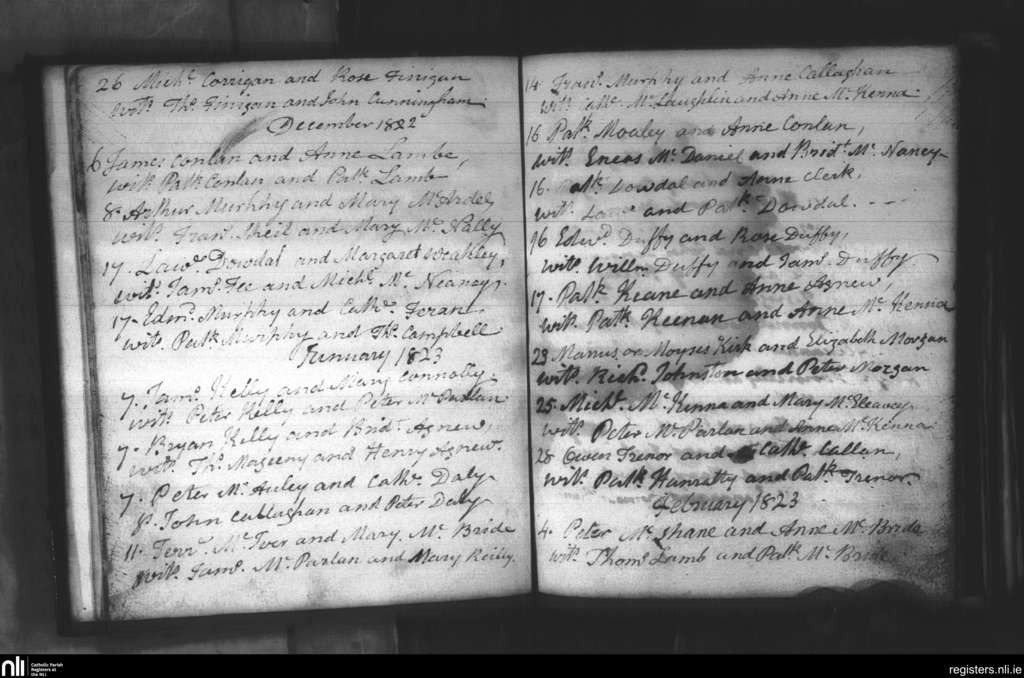 26 Michl. Corrigan and Rose Finigan
witn. Ths. Finigan and John Cunningham
December 1822
6 James Conlan and Anne Lambe,
witn. Patk. Conlan and Patk. Lamb
8. Arthur Murphy and Mary McArdel
witn. Frans. Sheil and Mary Mc. Nally
17. Lawe. Dowdal and Margaret Weakley,
witn. Jams. Fee and Michl. Mc. Neaney.
17. Edmd. Murphy and Cathe. Feran
witn. Patk. Murphy and Ths. Campbell
January 1823
7. Jams. Kelly and Mary Connolly.
witn. Peter Kelly and Peter McParlan
7. Bryan Kelly and Bridt. Agnew,
witn. Ths. Mageeny and Henry Agnew.
7. Peter Mc. Auley and Cathe. Daly
John Callaghan and Peter Daly
11. Terre. Mc. Iver and Mary Mc. Bride
witn. Jams. Mc. Parlan and Mary Reilly.
14. Frans. Murphy and Anne Callaghan
witn. Cathe. McLaughlin and Anne Mc. Kenna.
16 Patk. Mouley and Anne Conlan,
witn. Eneas Mc. Daniel and Bridt. Mc. Nancy
16. Patk. Dowdal and Anne Clerk,
witn. and Patk. Dowdal.
16 Edwd. Duffy and Rose Duffy,
witn. Willm. Duffy and Jams. Duffy
17. Patk. Keane and Anne Agnew,
witn. Patk. Keenan and Anne Mc. Kenna
23 Manus or Moyses Kirk and Elizabeth Morgan
witn. Richd. Johnston and Peter Morgan
25. Michl. Mc. Kenna and Mary McEleavey
witn. Peter Mc. Parlan and Anne McKenna
28 Owen Trenor and Cathe. Callan,
witn. Patk. Hanratty and Patk. Trenor.
February 1823
4. Peter Mc. Shane and Anne Mc. Bride
witn. Thoms. Lamb and Patk. Mc. Bride
nli Catholic Parish
Registers at
the NLI
registers.nli.ie